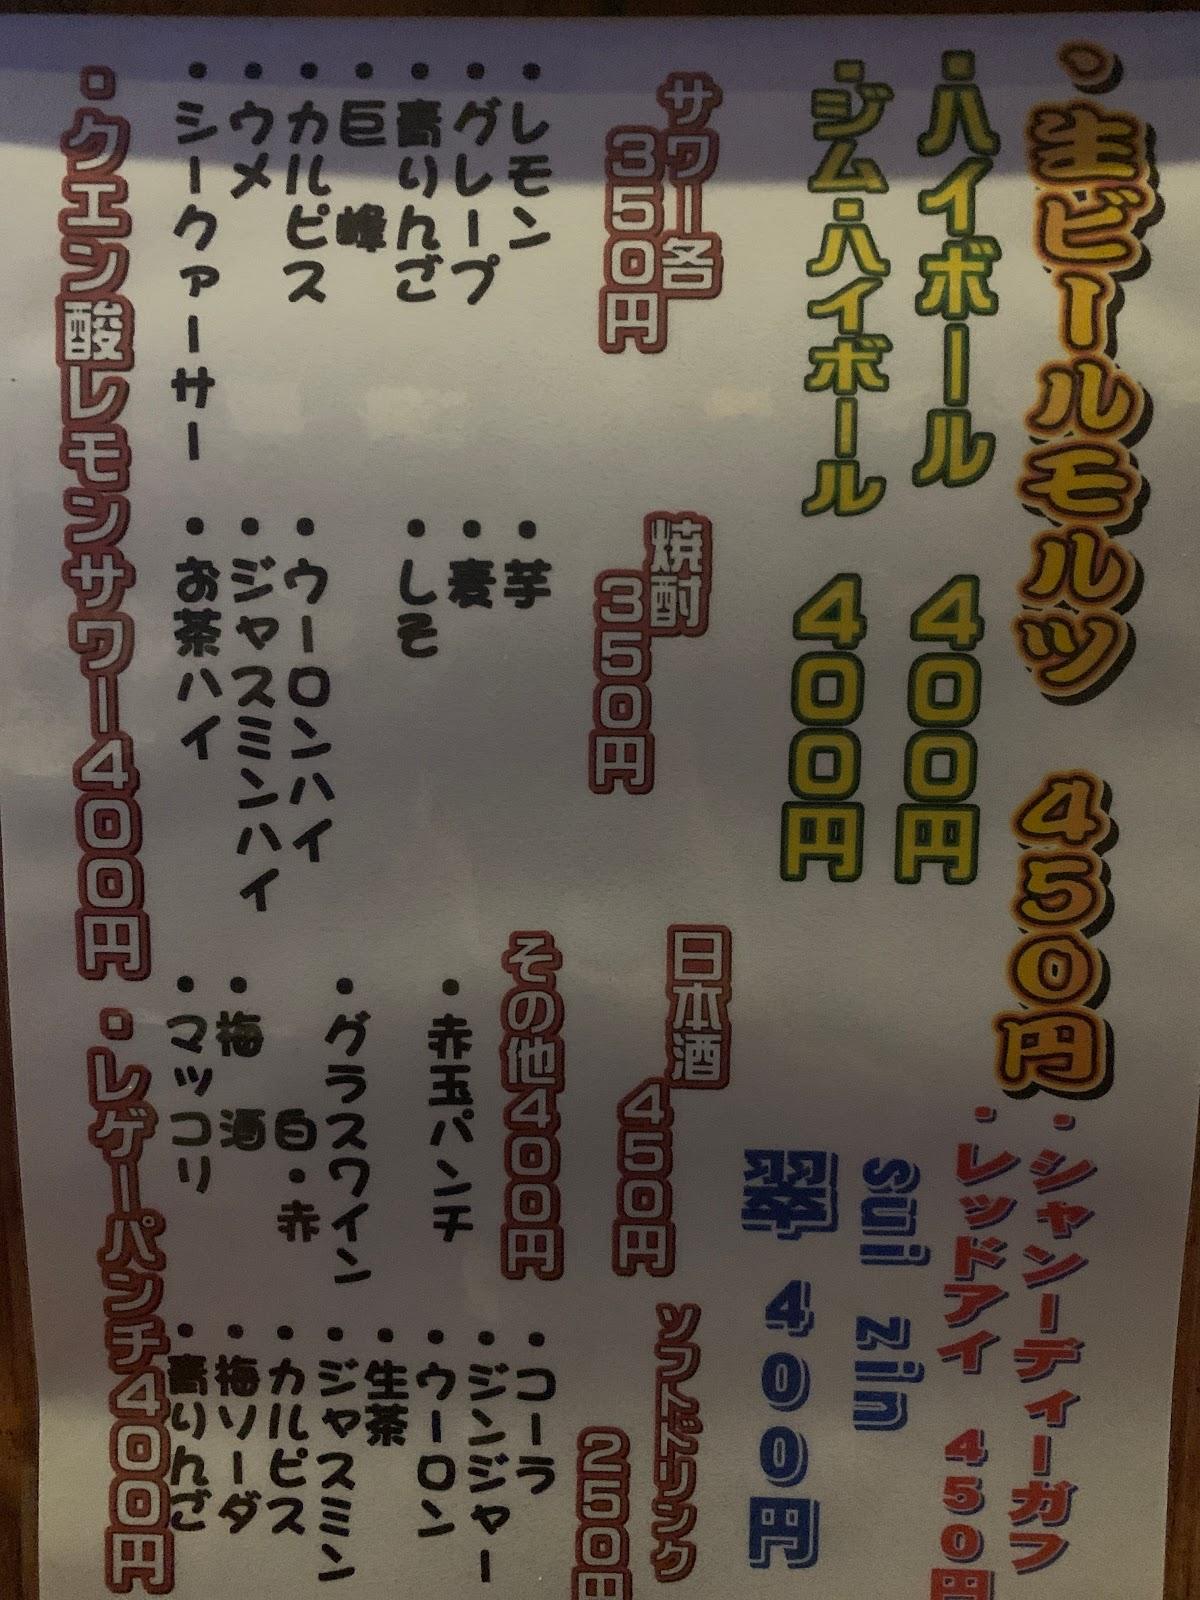 ・生ビールモルツ 450円
・シャンディーガフ
・レッドアイ 450円
・ハイボール 400円
・ジム・ハイボール 400円
sui zin
翠 400円
サワー各
350円
・レモン
・グレープ
・青りんご
・巨峰
・カルピス
・ウメ
・シークァーサー
焼酎
350円
・芋
・麦
・しそ
・ウーロンハイ
・ジャスミンハイ
・お茶ハイ
日本酒
450円
その他400円
・赤玉パンチ
・グラスワイン
白・赤
・梅酒
・マッコリ
ソフトドリンク
250円
・コーラ
・ジンジャー
・ウーロン
・生茶
・ジャスミン
・カルピス
・梅ソーダ
・青りんご
・クエン酸レモンサワー400円
・レゲーパンチ400円